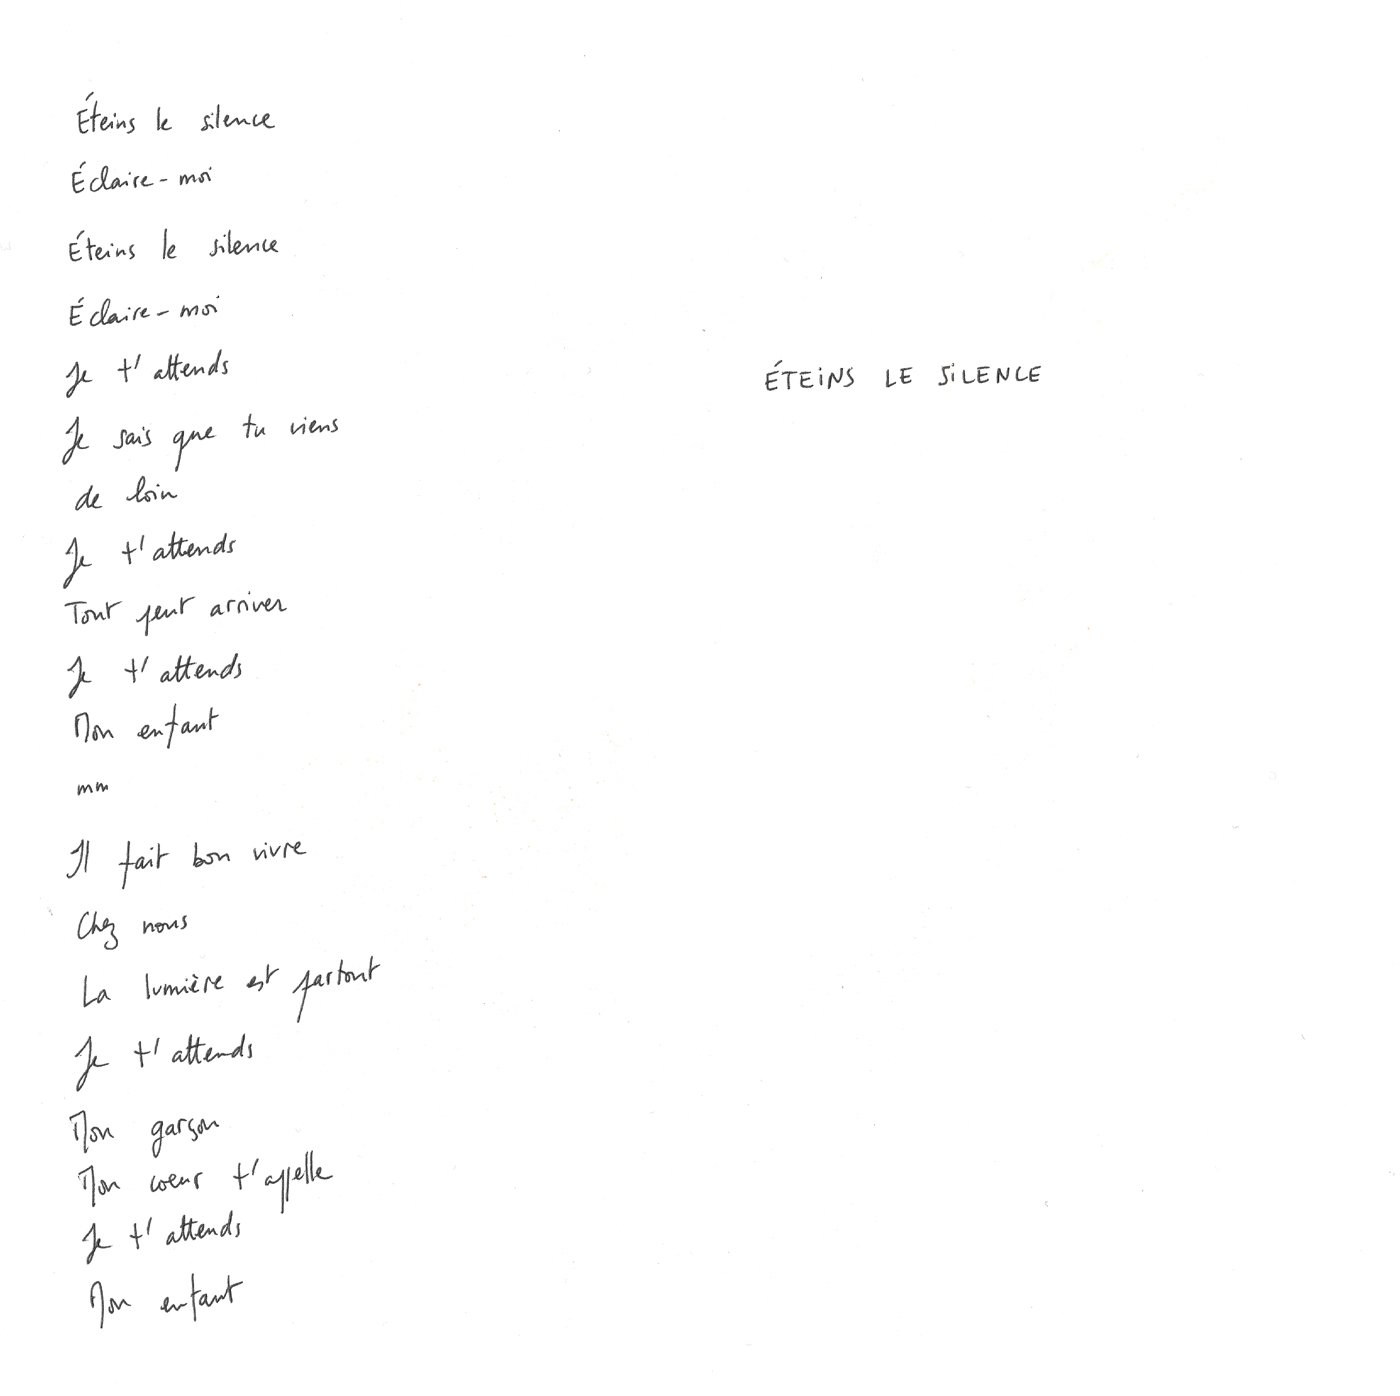 Éteins le silence
Éclaire-moi
Éteins le silence
Éclaire-moi
Je t'attends
Je sais que tu viens
de loin
Je t'attends
Tout peut arriver
Je t'attends
Mon enfant
mm
Il fait bon vivre
Chez nous
La lumière est partout
Je t'attends
Mon garçon
Mon coeur t'appelle
Je t'attends
Mon enfant
ÉTEiNS LE SiLENCE